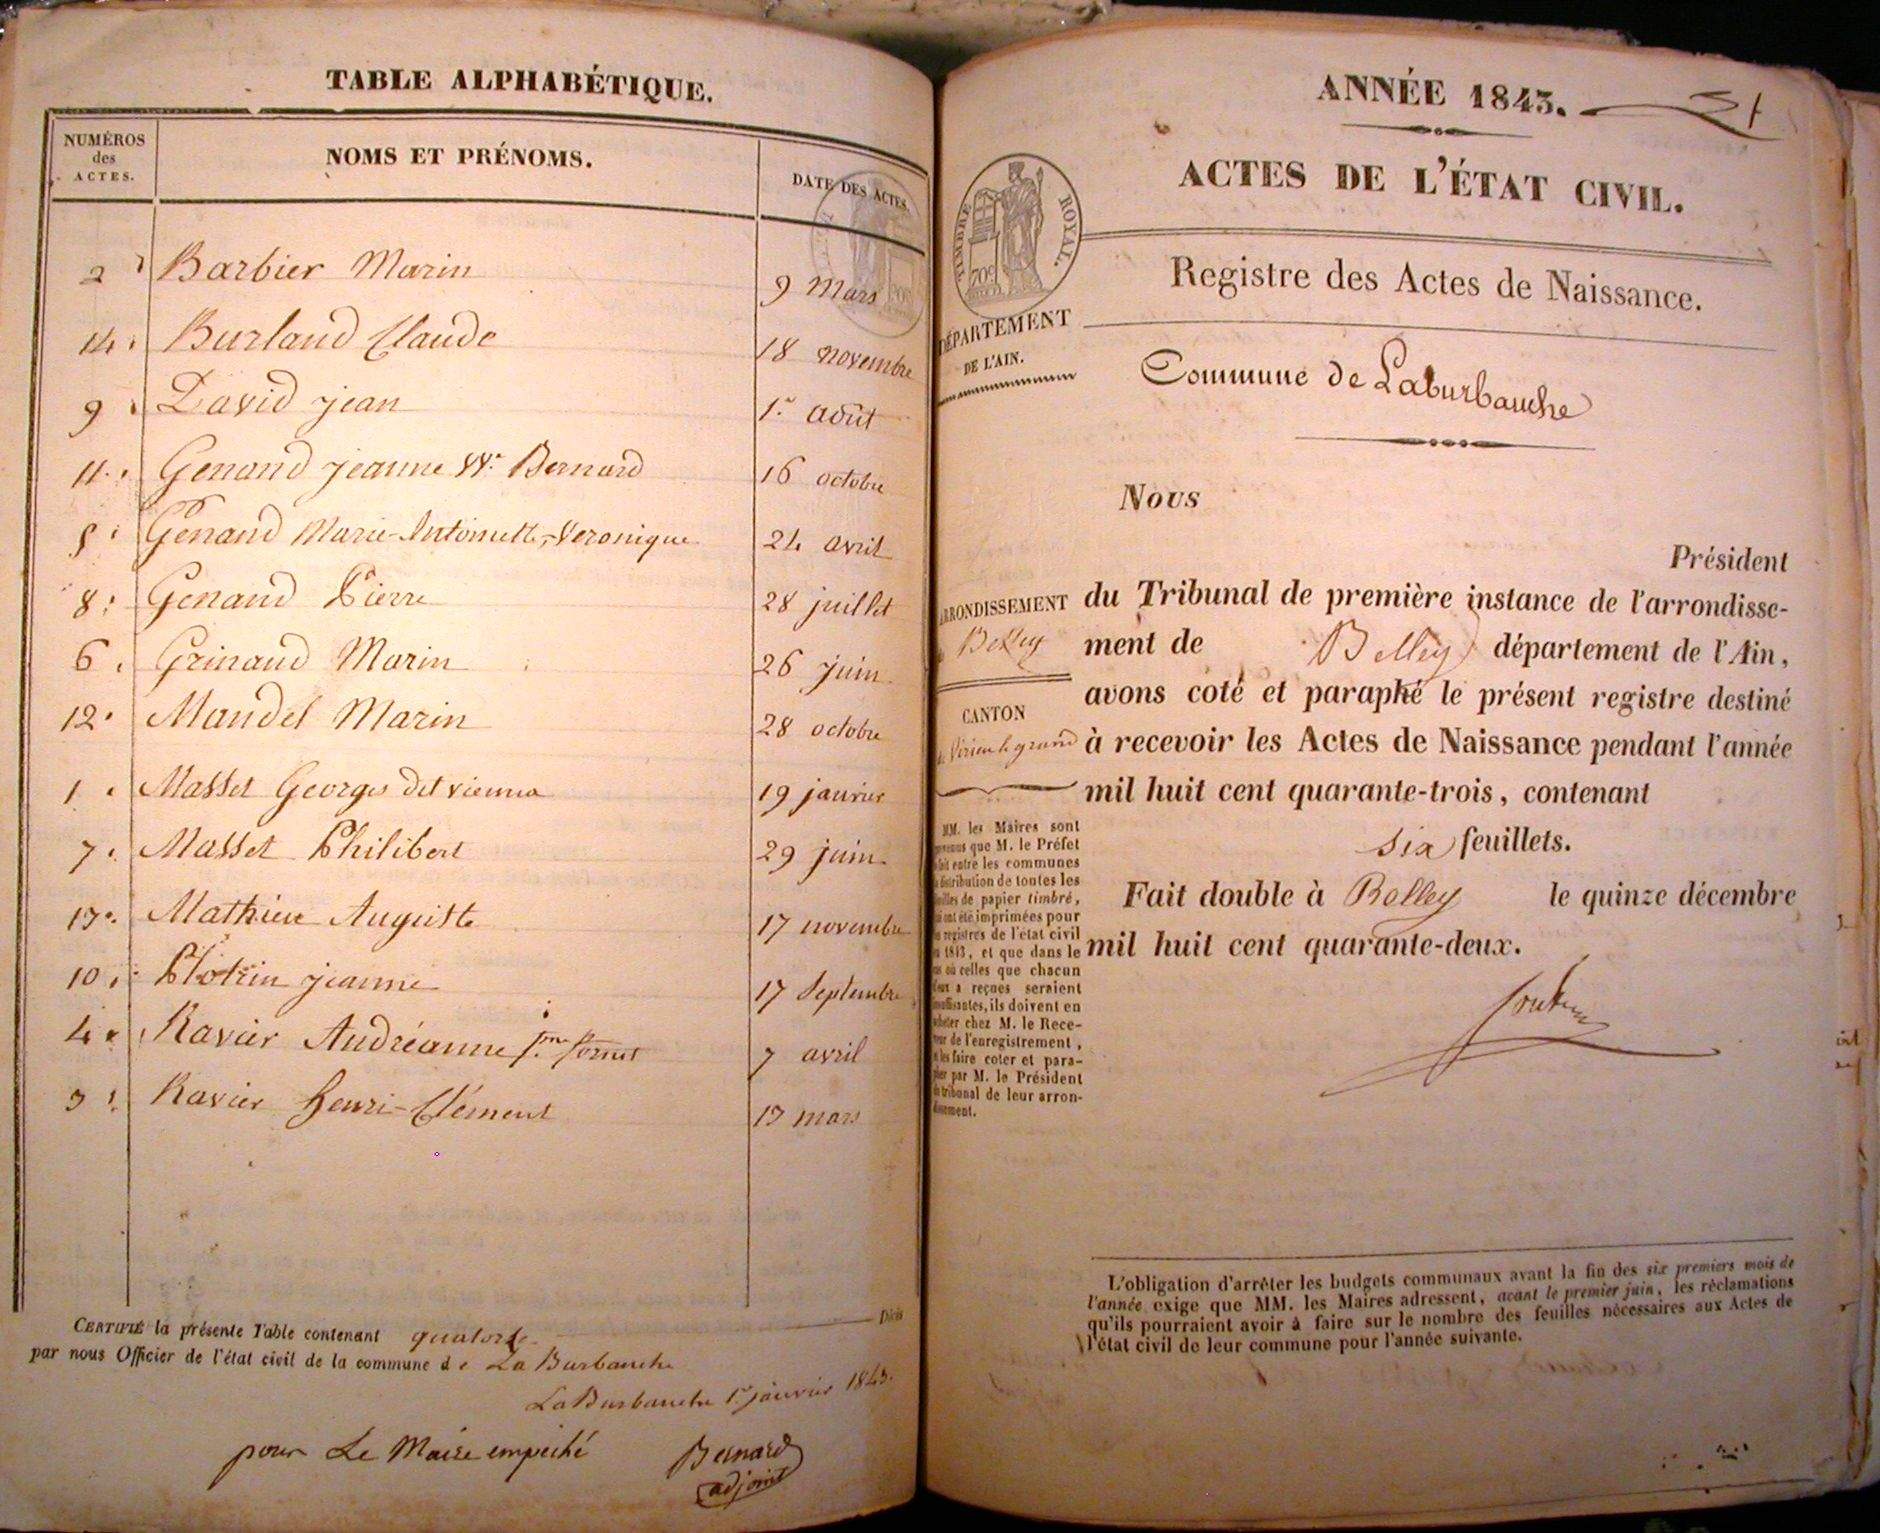 TABLE ALPHABÉTIQUE.
NUMÉROS des ACTES.
NOMS ET PRÉNOMS.
DATE DES ACTES.
2 Barbier Marin 9 Mars
14 Burland Claude 18 novembre
9 David jean 1.er août
11 Genand jeanne Ve Bernard 16 octobre
5 Genand Marie-Antoinette-Veronique 24 avril
8 Genand Pierre 28 juillet
6 Grinand Marin 26 juin
12 Mandel Marin 28 octobre
1 Masset Georges dit vienna 19 janvier
7 Masset Philibert 29 juin
13 Mathieu Auguste 17 novembre
10 Plotrin jeanne 17 Septembre
4 Ravier Andréanne 7 avril
3 Ravier henri-Clément 13 mars
CERTIFIÉ la présente Table contenant quatorze
par nous Officier de l'état civil de la commune de La Burbanche
La Burbanche 1.er janvier 1843.
pour Le Maire empeché Bernard
adjoint
ANNÉE 1843. 31
ACTES DE L'ÉTAT CIVIL.
TIMBRE ROYAL.
70c
Registre des Actes de Naissance.
DÉPARTEMENT
DE L'AIN.
Commune de Laburbanche
Nous
Président
ARRONDISSEMENT
Belley
CANTON
de Virieu le grand
du Tribunal de première instance de l'arrondisse-
ment de Belley département de l'Ain,
avons coté et paraphé le présent registre destiné
à recevoir les Actes de Naissance pendant l'année
mil huit cent quarante-trois, contenant
six feuillets.
Fait double à Belley le quinze décembre
mil huit cent quarante-deux.
MM. les Maires sont
prévenus que M. le Préfet
a fait entre les communes
la distribution de toutes les
feuilles de papier timbré,
qui ont été imprimées pour
les registres de l'état civil
en 1843, et que dans le
cas où celles que chacun
d'eux a reçues seraient
insuffisantes, ils doivent en
acheter chez M. le Rece-
veur de l'enregistrement,
et les faire coter et para-
pher par M. le Président
du tribunal de leur arron-
dissement.
L'obligation d'arrêter les budgets communaux avant la fin des six premiers mois de
l'année exige que MM. les Maires adressent, avant le premier juin, les réclamations
qu'ils pourraient avoir à faire sur le nombre des feuilles nécessaires aux Actes de
l'état civil de leur commune pour l'année suivante.